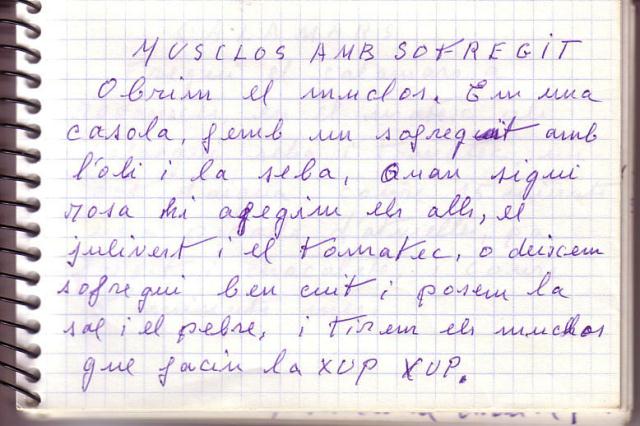 MUSCLOS AMB SOFREGIT
Obrim el musclos. Em una
casola, femb un sofregit amb
l'oli i la seba, Quan sigui
rosa hi afegim els alls, el
julivert i el tomatec, o deixem
sofregui ben cuit i posem la
sal i el pebre, i tirem els musclos
que facin la XUP XUP.